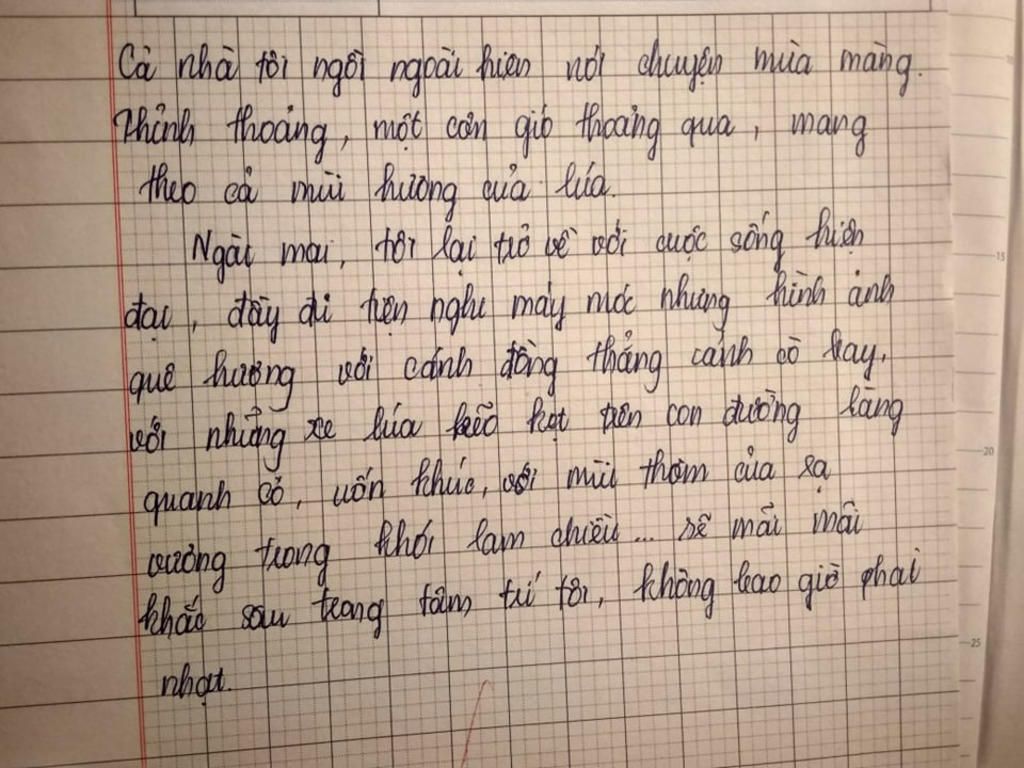 Cả nhà tôi ngồi ngoài hiên nói chuyện mùa màng.
Thỉnh thoảng, một cơn gió thoảng qua, mang
theo cả mùi hương của lúa.
Ngài mai, tôi lại trở về với cuộc sống hiện
đại, đầy đủ tiện nghi máy móc nhưng hình ảnh
quê hương với cánh đồng thẳng cánh cò bay,
với những xe lúa kẽo kẹt trên con đường làng
quanh co, uốn khúc, với mùi thơm của rạ
vương trong khói lam chiều... sẽ mãi mãi
khắc sâu trong tâm trí tôi, không bao giờ phai
nhạt.